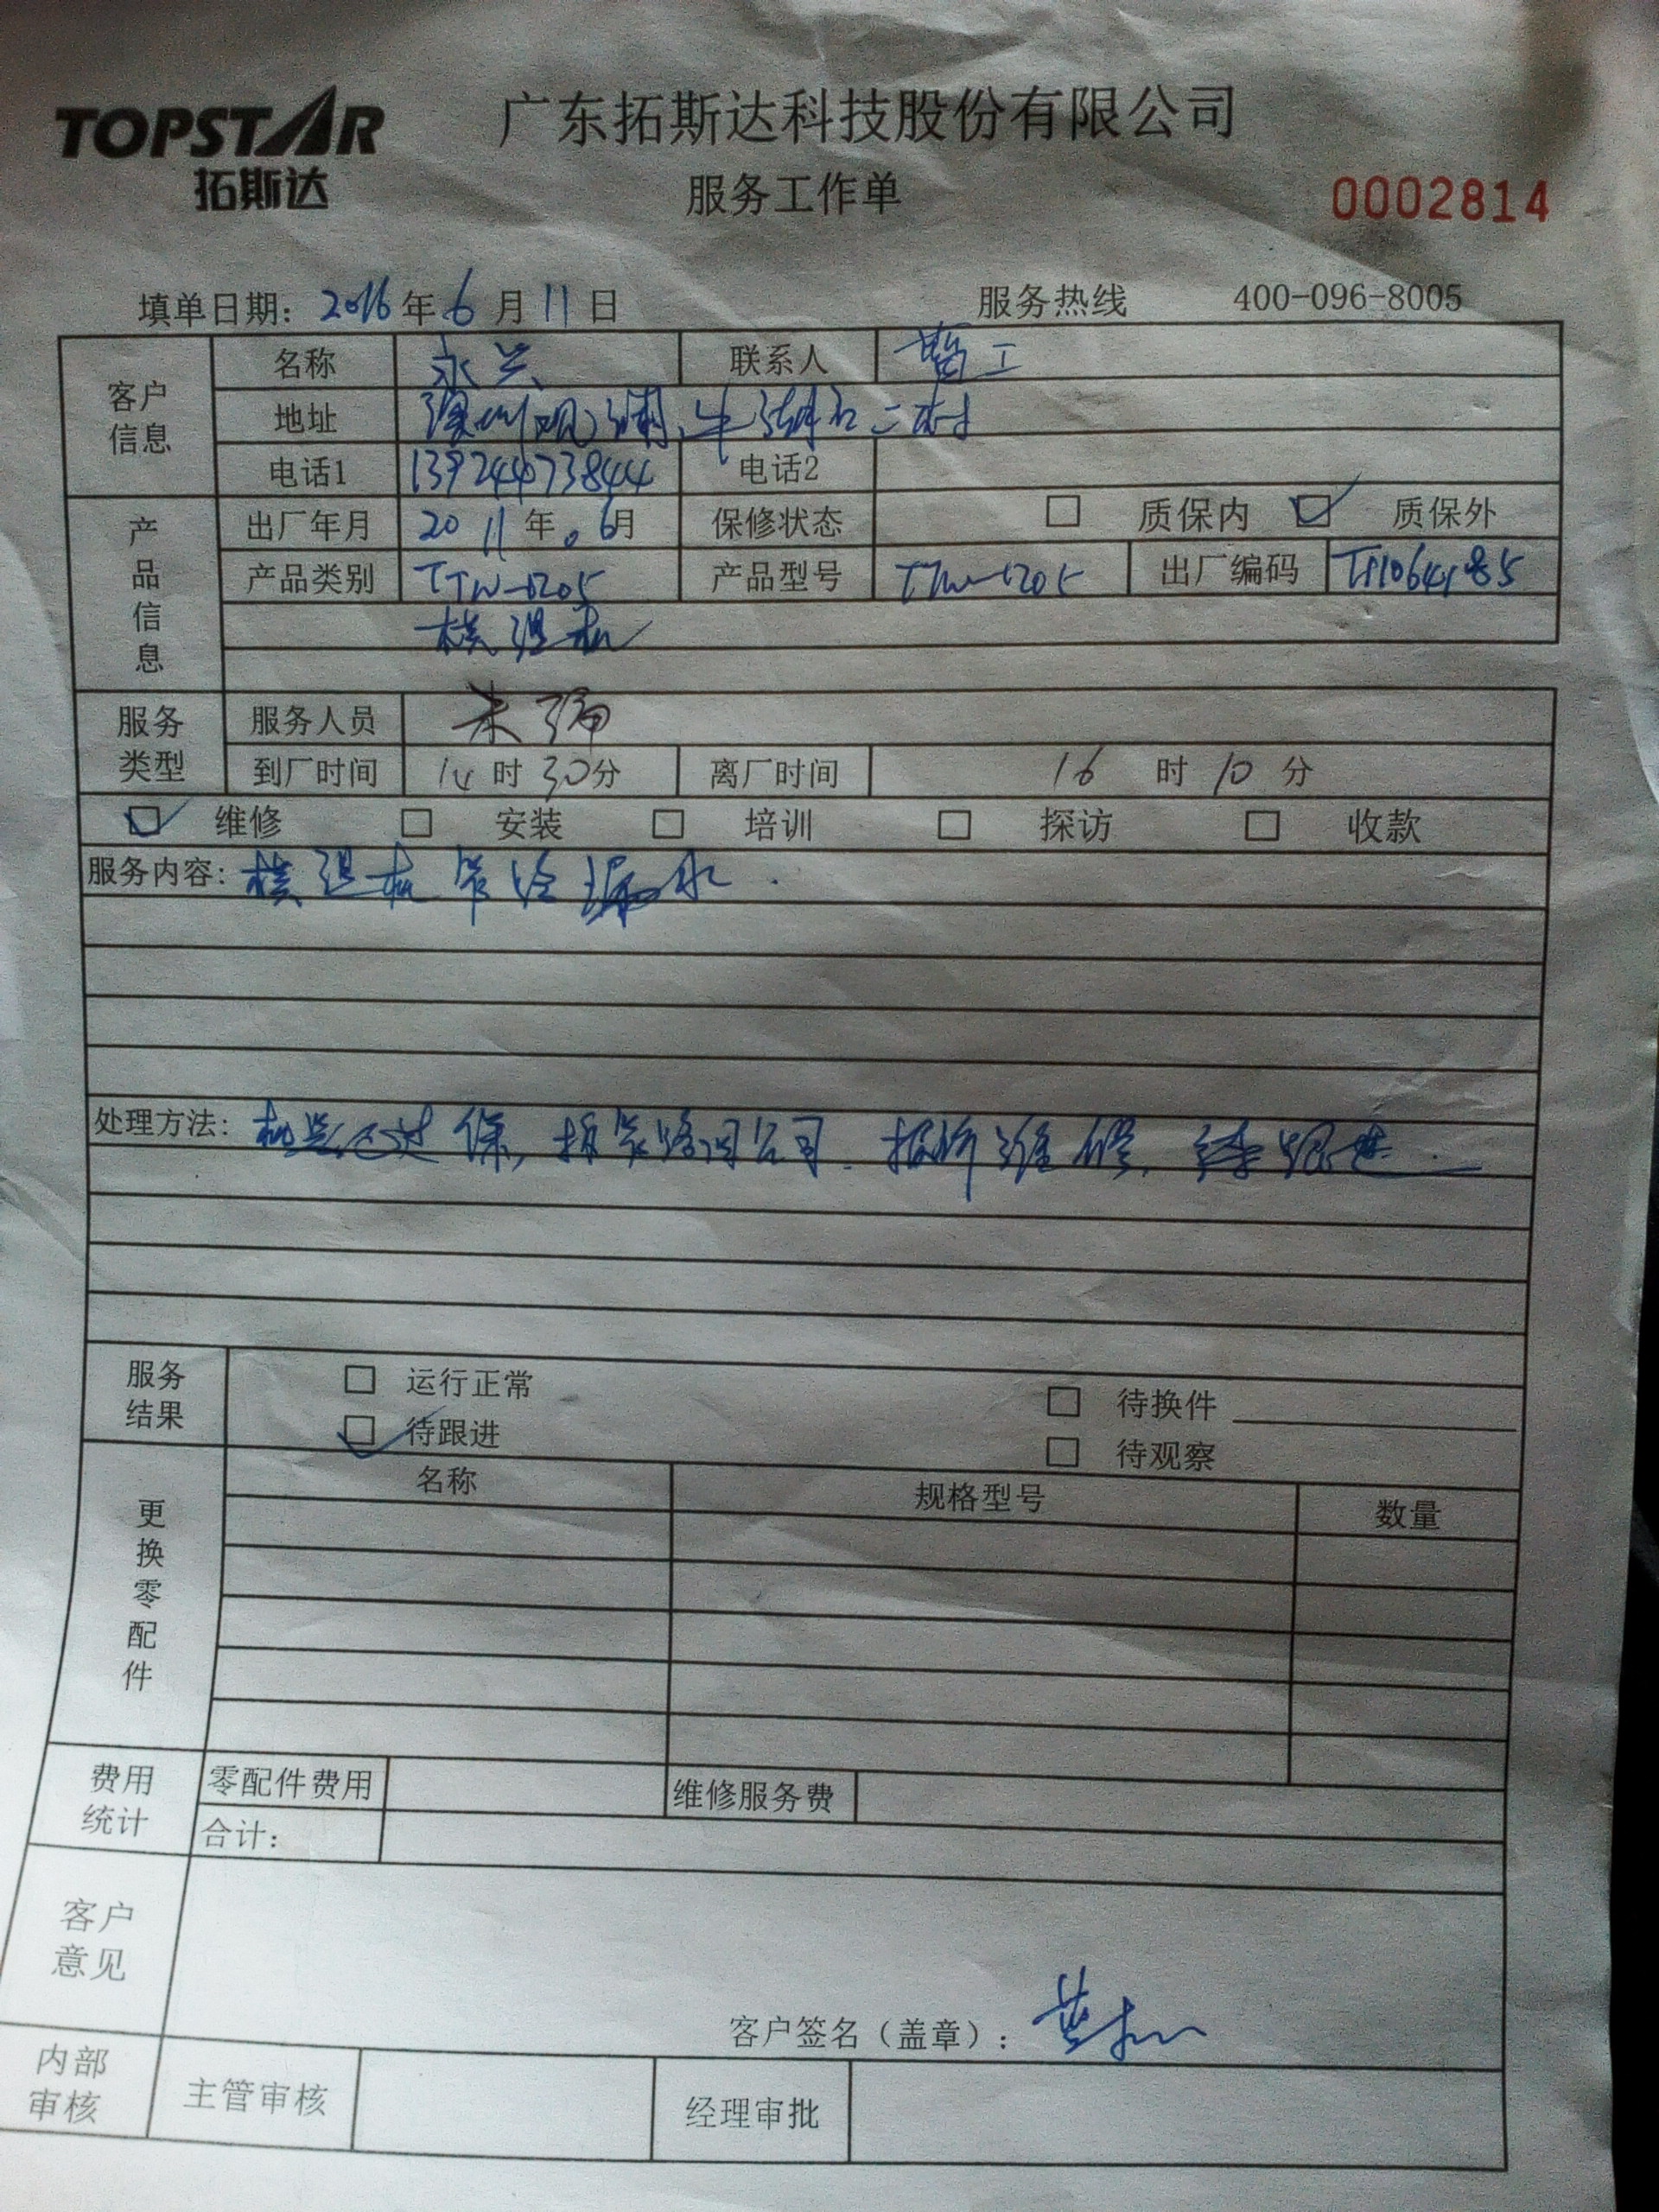 TOPSTAR
拓斯达
广东拓斯达科技股份有限公司
服务工作单
0002814
填单日期：2016年6月11日 服务热线 400-096-8005
客户信息
名称 永兴 联系人 工
地址 深圳观澜、牛湖石二村
电话1 13924473844 电话2
产品信息
出厂年月 2011年.6月 保修状态 □ 质保内 ☑ 质保外
产品类别 TTW-1205 产品型号 TTW-1205 出厂编码
模温机
服务类型
服务人员 朱强
到厂时间 14时30分 离厂时间 16时10分
☑ 维修 □ 安装 □ 培训 □ 探访 □ 收款
服务内容：模温机 冷漏水.
处理方法：机器已过保，拆 公司.报价维修，跟进.
服务结果
□ 运行正常 □ 待换件
☑ 待跟进 □ 待观察
更换零配件
名称 规格型号 数量
费用统计
零配件费用 维修服务费
合计：
客户意见
客户签名（盖章）：黄
内部审核
主管审核 经理审批